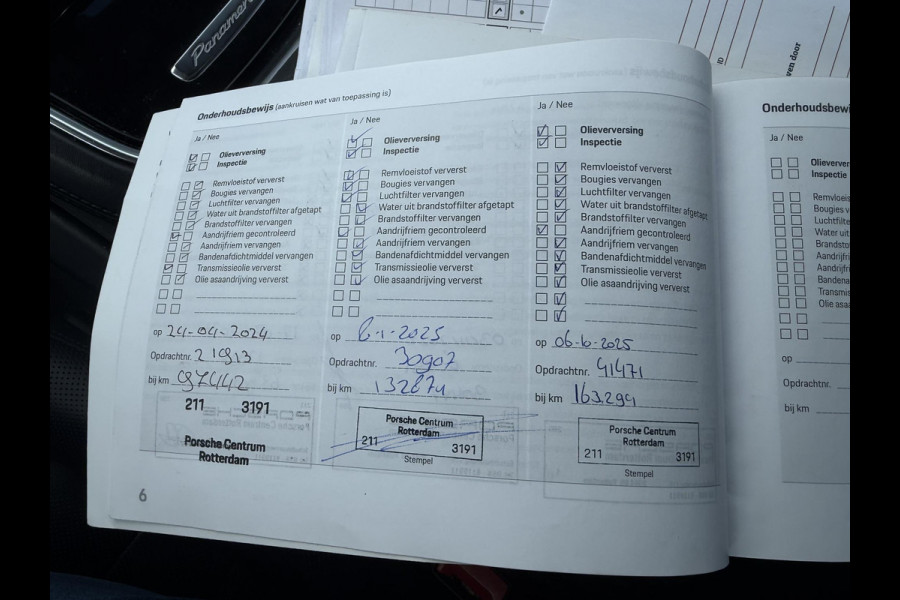 Panamera
ID
ven door
Onderhoudsbewijs (aankruisen wat van toepassing is)
Ja / Nee
Olieverversing
Inspectie
Remvloeistof ververst
Bougies vervangen
Luchtfilter vervangen
Water uit brandstoffilter afgetapt
Brandstoffilter vervangen
Aandrijfriem gecontroleerd
Aandrijfriem vervangen
Bandenafdichtmiddel vervangen
Transmissieolie ververst
Olie asaandrijving ververst
op 24-04-2024
Opdrachtnr. 21913
bij km 097442
211 3191
Porsche Centrum
Rotterdam
6
Ja / Nee
Olieverversing
Inspectie
Remvloeistof ververst
Bougies vervangen
Luchtfilter vervangen
Water uit brandstoffilter afgetapt
Brandstoffilter vervangen
Aandrijfriem gecontroleerd
Aandrijfriem vervangen
Bandenafdichtmiddel vervangen
Transmissieolie ververst
Olie asaandrijving ververst
op 6-1-2025
Opdrachtnr. 30907
bij km 132874
Porsche Centrum
Rotterdam
211 3191
Stempel
Ja / Nee
Olieverversing
Inspectie
Remvloeistof ververst
Bougies vervangen
Luchtfilter vervangen
Water uit brandstoffilter afgetapt
Brandstoffilter vervangen
Aandrijfriem gecontroleerd
Aandrijfriem vervangen
Bandenafdichtmiddel vervangen
Transmissieolie ververst
Olie asaandrijving ververst
op 06-10-2025
Opdrachtnr. 41471
bij km 163.294
Porsche Centrum
Rotterdam
211 3191
Stempel
Onderhoudsbewij
Ja / Nee
Olieverver
Inspectie
Remvloeis
Bougies v
Luchtfilte
Water uit
Brandsto
Aandrijfr
Aandrijfr
Bandena
Transmis
Olie asa
op
Opdrachtnr.
bij km